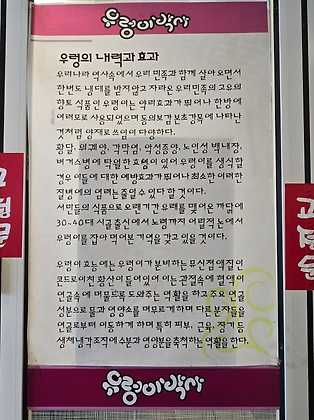 우렁이박사
우렁의 내력과 효과
우리나라 역사속에서 우리 민족과 함께 살아 오면서
한번도 냉대를 받지않고 자라온 우리민족의 고유의
향토 식품인 우렁이는 약리효과가 뛰어나 한방에
여러모로 사용되었으며 동의보감 본초강목에 나타난
것처럼 양재로 쓰임이 다양하다.
황달, 위궤양, 각막염, 악성종양, 노인성 백내장,
버거스병에 탁월한 효험이 있어 우렁이를 생식할
경우 이들에 대한 예방효과가 뛰어나 최소한 이러한
질병에의 염려는 줄일수 있다 할 것이다.
서민들의 식품으로 오랜기간 유래를 맺어온 까닭에
30~40대 시골출신에서 노령까지 어릴적 논에서
우렁이를 잡아 먹어본 기억을 갖고 있을 것이다.
우렁이 효능에는 우렁이가 분비하는 뮤신점액질이
콘드로이친 황산이 들어있어 이는 관절속에 혈액이
연골속에 머물도록 도와주는 역활을 하고 주요 연골
성분으로 물과 영양소를 머무르게 하며 다른 분자들을
연골로부터 이동하게 하며 특히 피부, 근육, 장기 등
생체 내 각조직에 수분과 영양분을 축척하는 역활을 한다.
우렁이박사